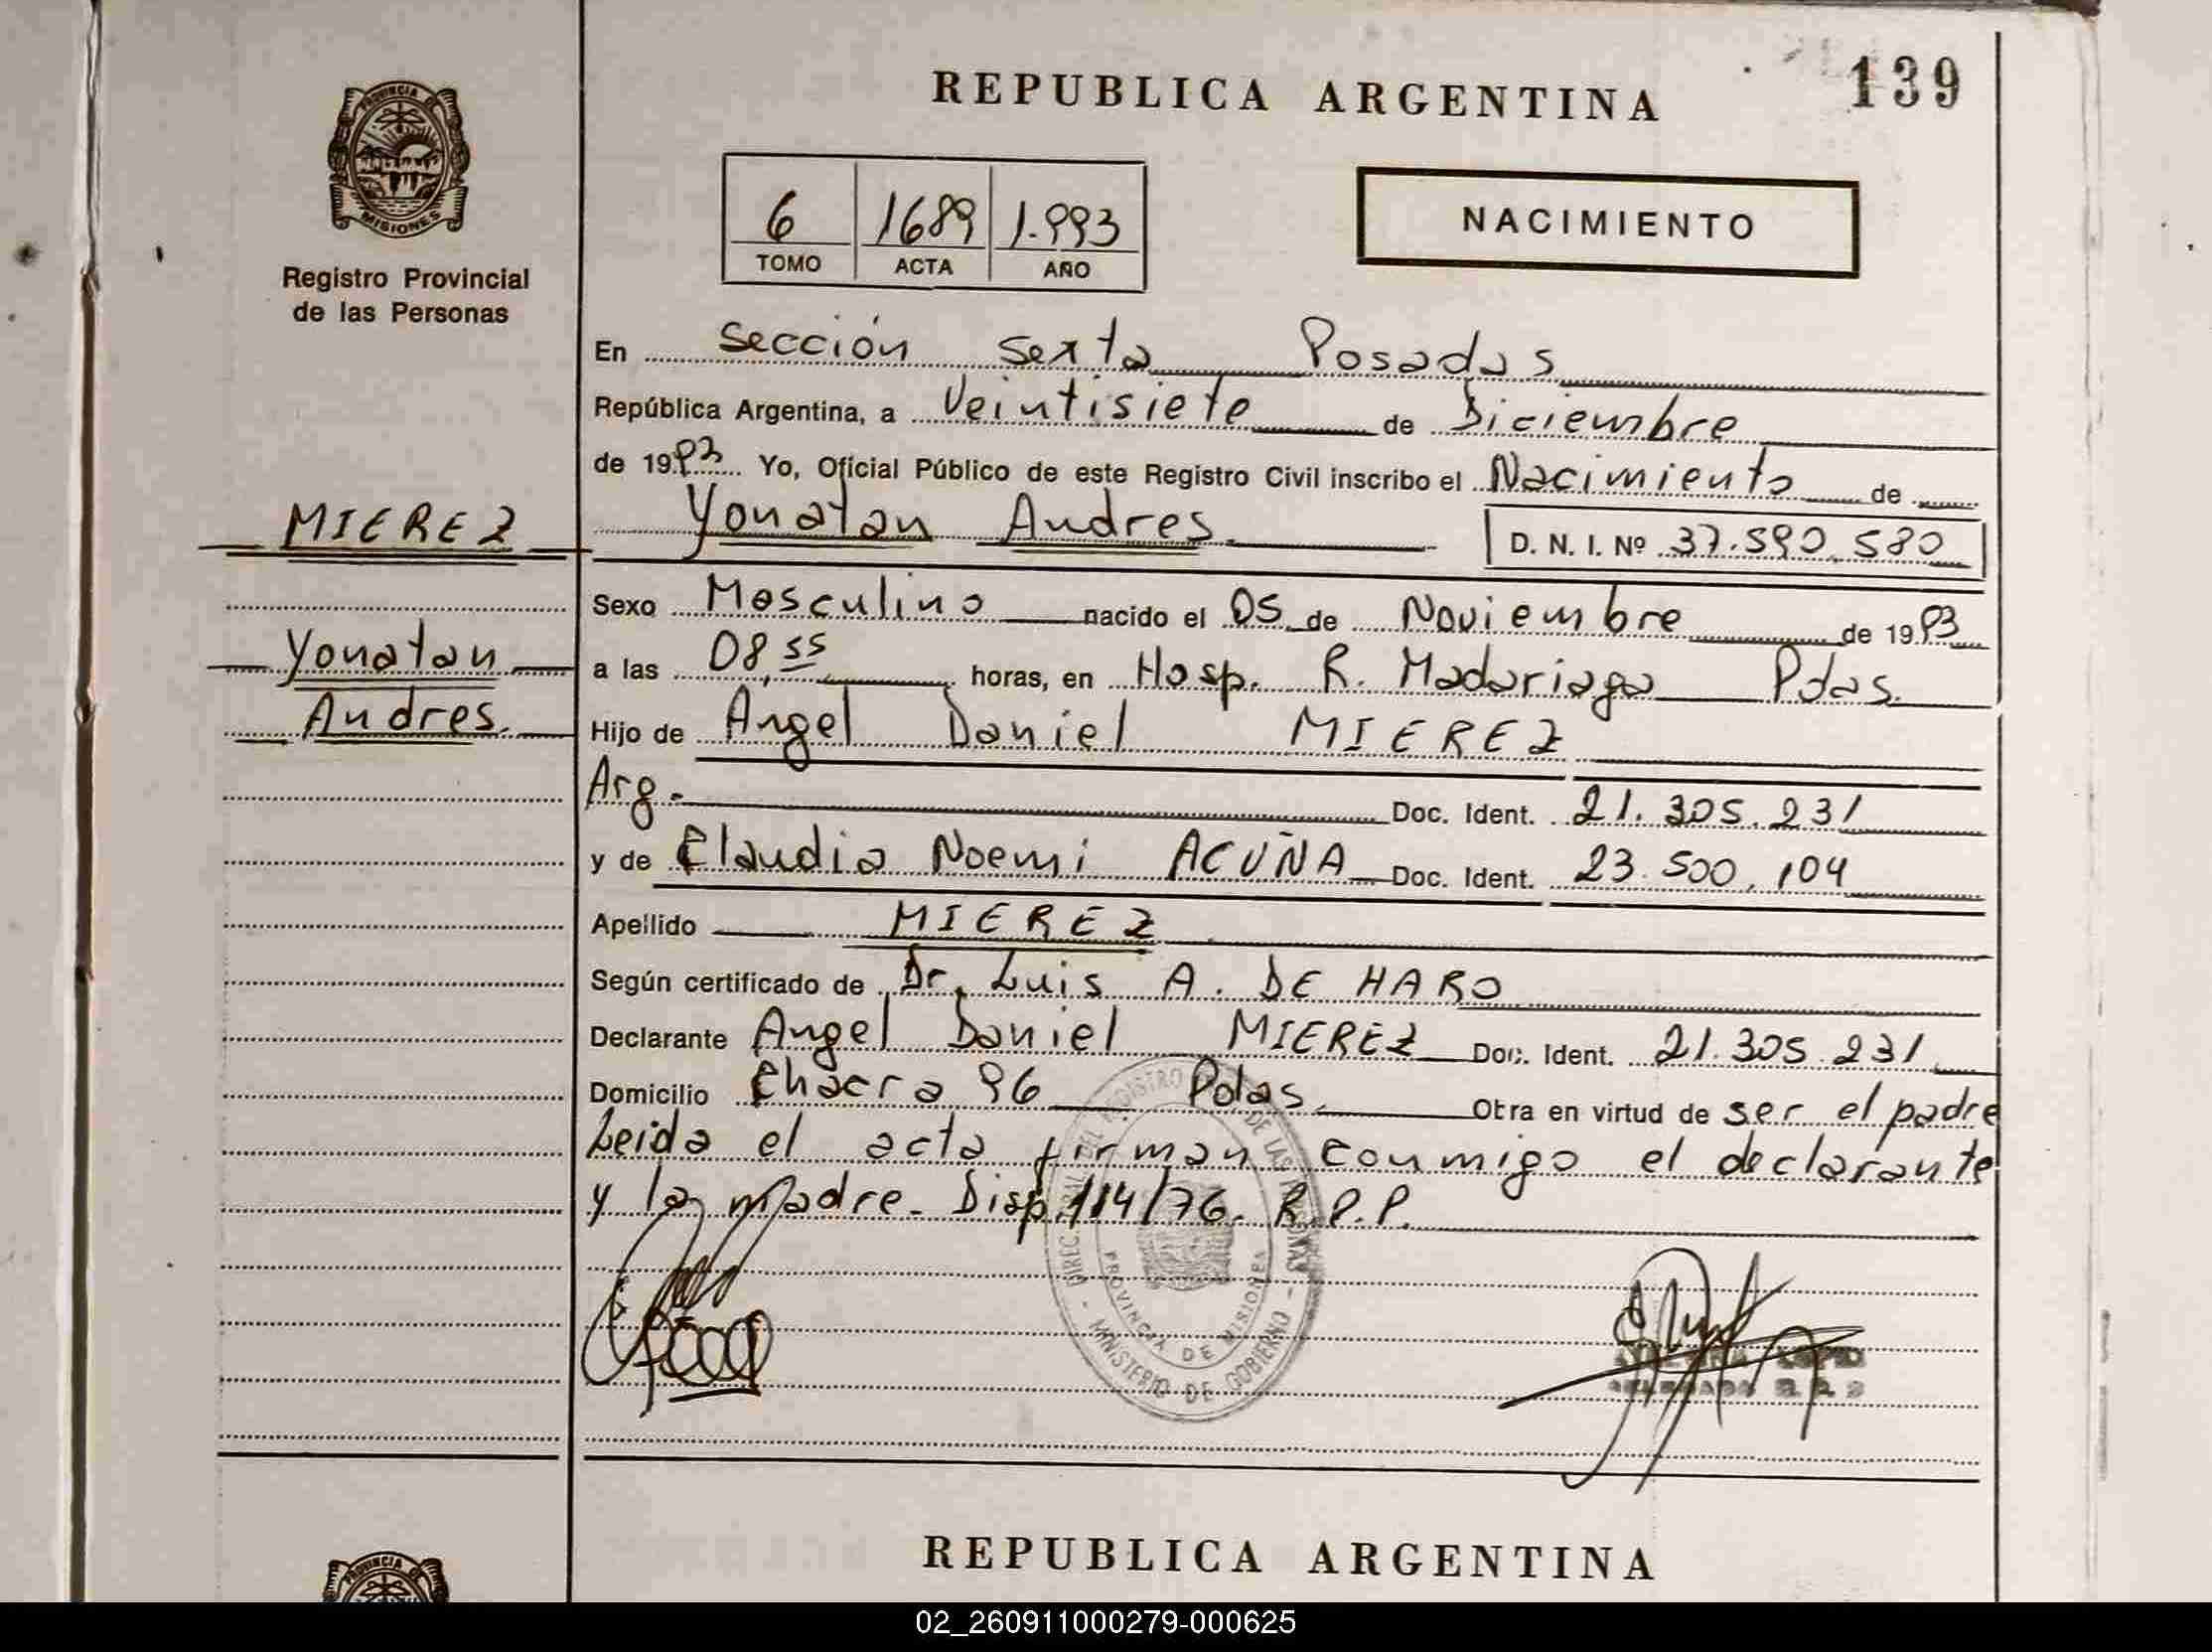 139
REPUBLICA ARGENTINA
PROVINCIA DE
MISIONES
Registro Provincial
de las Personas
6 1689 1.993
TOMO ACTA AÑO
NACIMIENTO
En Sección Sexta Posadas
República Argentina, a Veintisiete de Diciembre
de 1993 Yo, Oficial Público de este Registro Civil inscribo el Nacimiento de
MIEREZ
Yonatan Andres
D. N. I. Nº 37.590.580
Sexo Masculino nacido el 05 de Noviembre de 1993
Yonatan
Andres.
a las 08,55 horas, en Hosp. R. Madariaga Pdas.
Hijo de Angel Daniel MIEREZ
Arg. Doc. Ident. 21.305.231
y de Claudia Noemi ACUÑA Doc. Ident. 23.500.104
Apellido MIEREZ
Según certificado de Dr. Luis A. DE HARO
Declarante Angel Daniel MIEREZ Doc. Ident. 21.305.231
Domicilio Chacra 96 Pdas. Obra en virtud de ser el padre
Leida el acta firman conmigo el declarante
y la madre. Disp. 114/76. R.P.P.
PROVINCIA DE MISIONES
MINISTERIO DE GOBIERNO
REPUBLICA ARGENTINA
PROVINCIA
02_260911000279-000625